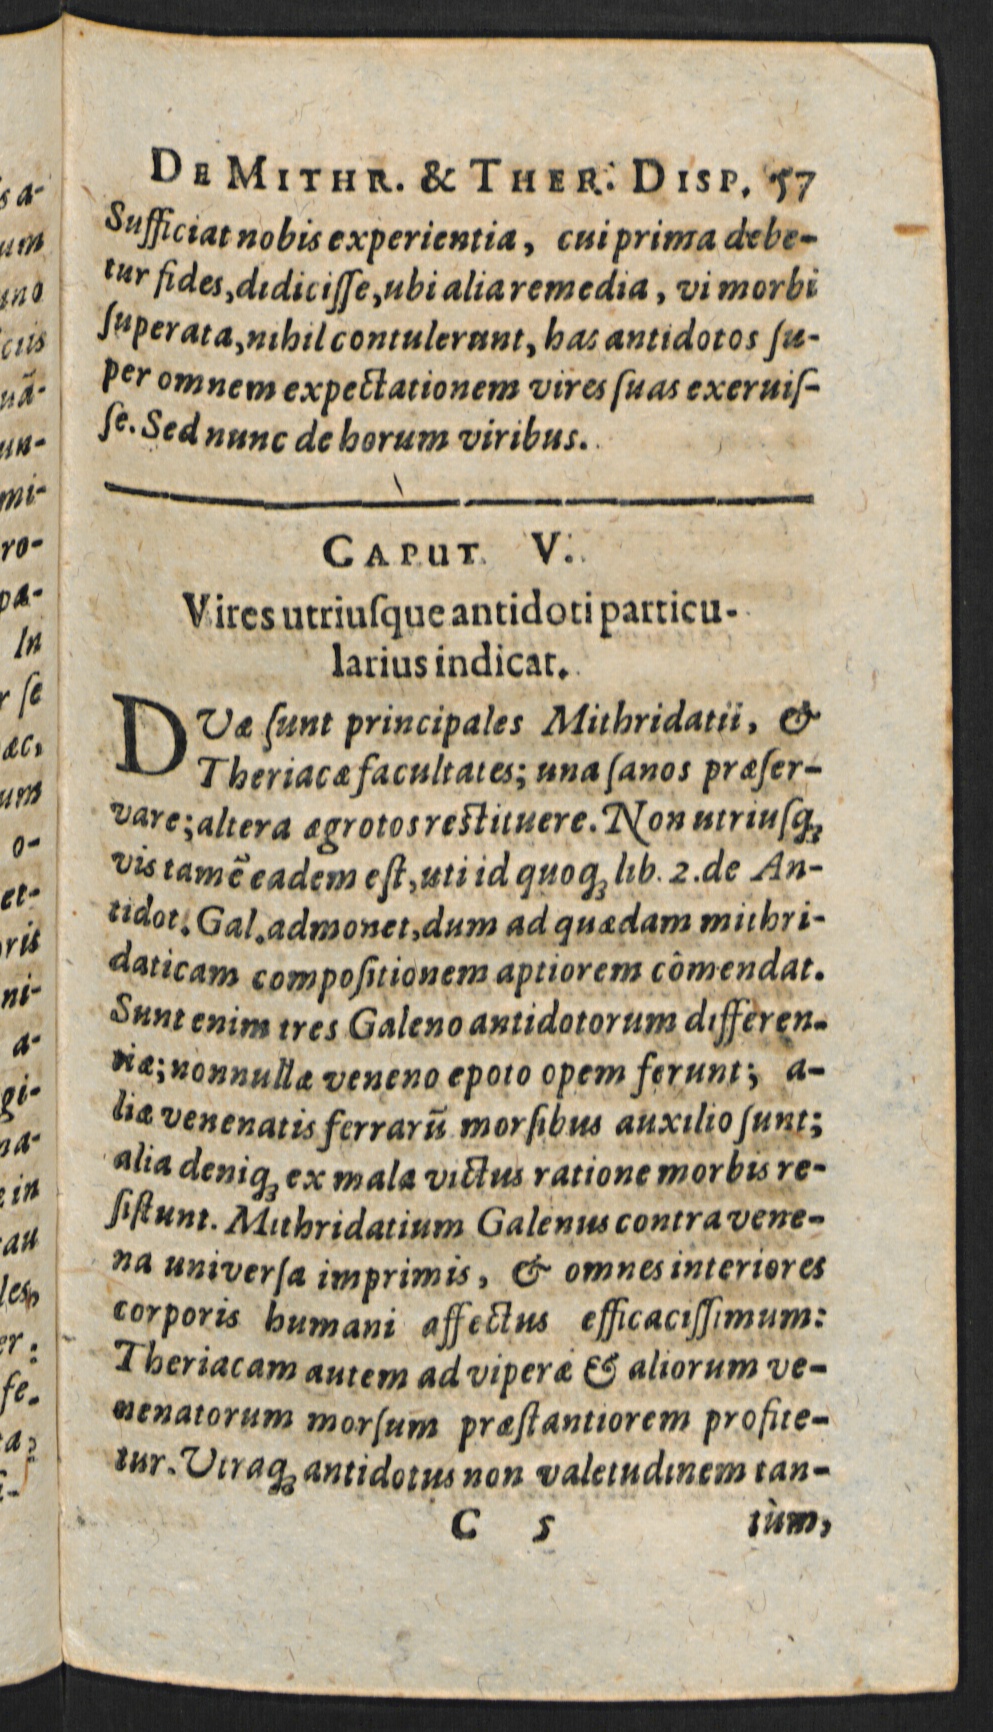 DE MITHR. & THER. DISP. 57
Sufficiat nobis experientia, cui prima debe-
tur fides, didiciſſe, ubi alia remedia, vi morbi
ſuperata, nihil contulerunt, has antidotos ſu-
per omnem expectationem vires ſuas exeruiſ-
ſe. Sed nunc de horum viribus.
CAPUT V.
Vires utriuſque antidoti particu-
larius indicat.
DVæ ſunt principales Mithridatii, &
Theriacæ facultates; una ſanos præſer-
vare; altera ægrotos reſtituere. Non utriuſq́;
vis tamẽ eadem eſt, uti id quoq; lib. 2. de An-
tidot. Gal. admonet, dum ad quædam mithri-
daticam compoſitionem aptiorem cõmendat.
Sunt enim tres Galeno antidotorum differen-
tiæ; nonnullæ veneno epoto opem ferunt; a-
liæ venenatis ferrarũ morſibus auxilio ſunt;
alia deniq; ex mala victus ratione morbis re-
ſiſtunt. Mithridatium Galenus contra vene-
na univerſa imprimis, & omnes interiores
corporis humani affectus efficaciſſimum:
Theriacam autem ad viperæ & aliorum ve-
nenatorum morſum præſtantiorem profite-
tur. Utraq; antidotus non valetudinem tan-
C 5 tùm,
s a-
um
uno
cuis
uã-
un-
mi-
ro-
pa-
In
r ſe
æc,
um
o-
et-
oris
ni-
a-
gi-
na-
e in
au
les,
er:
fe.
ta?